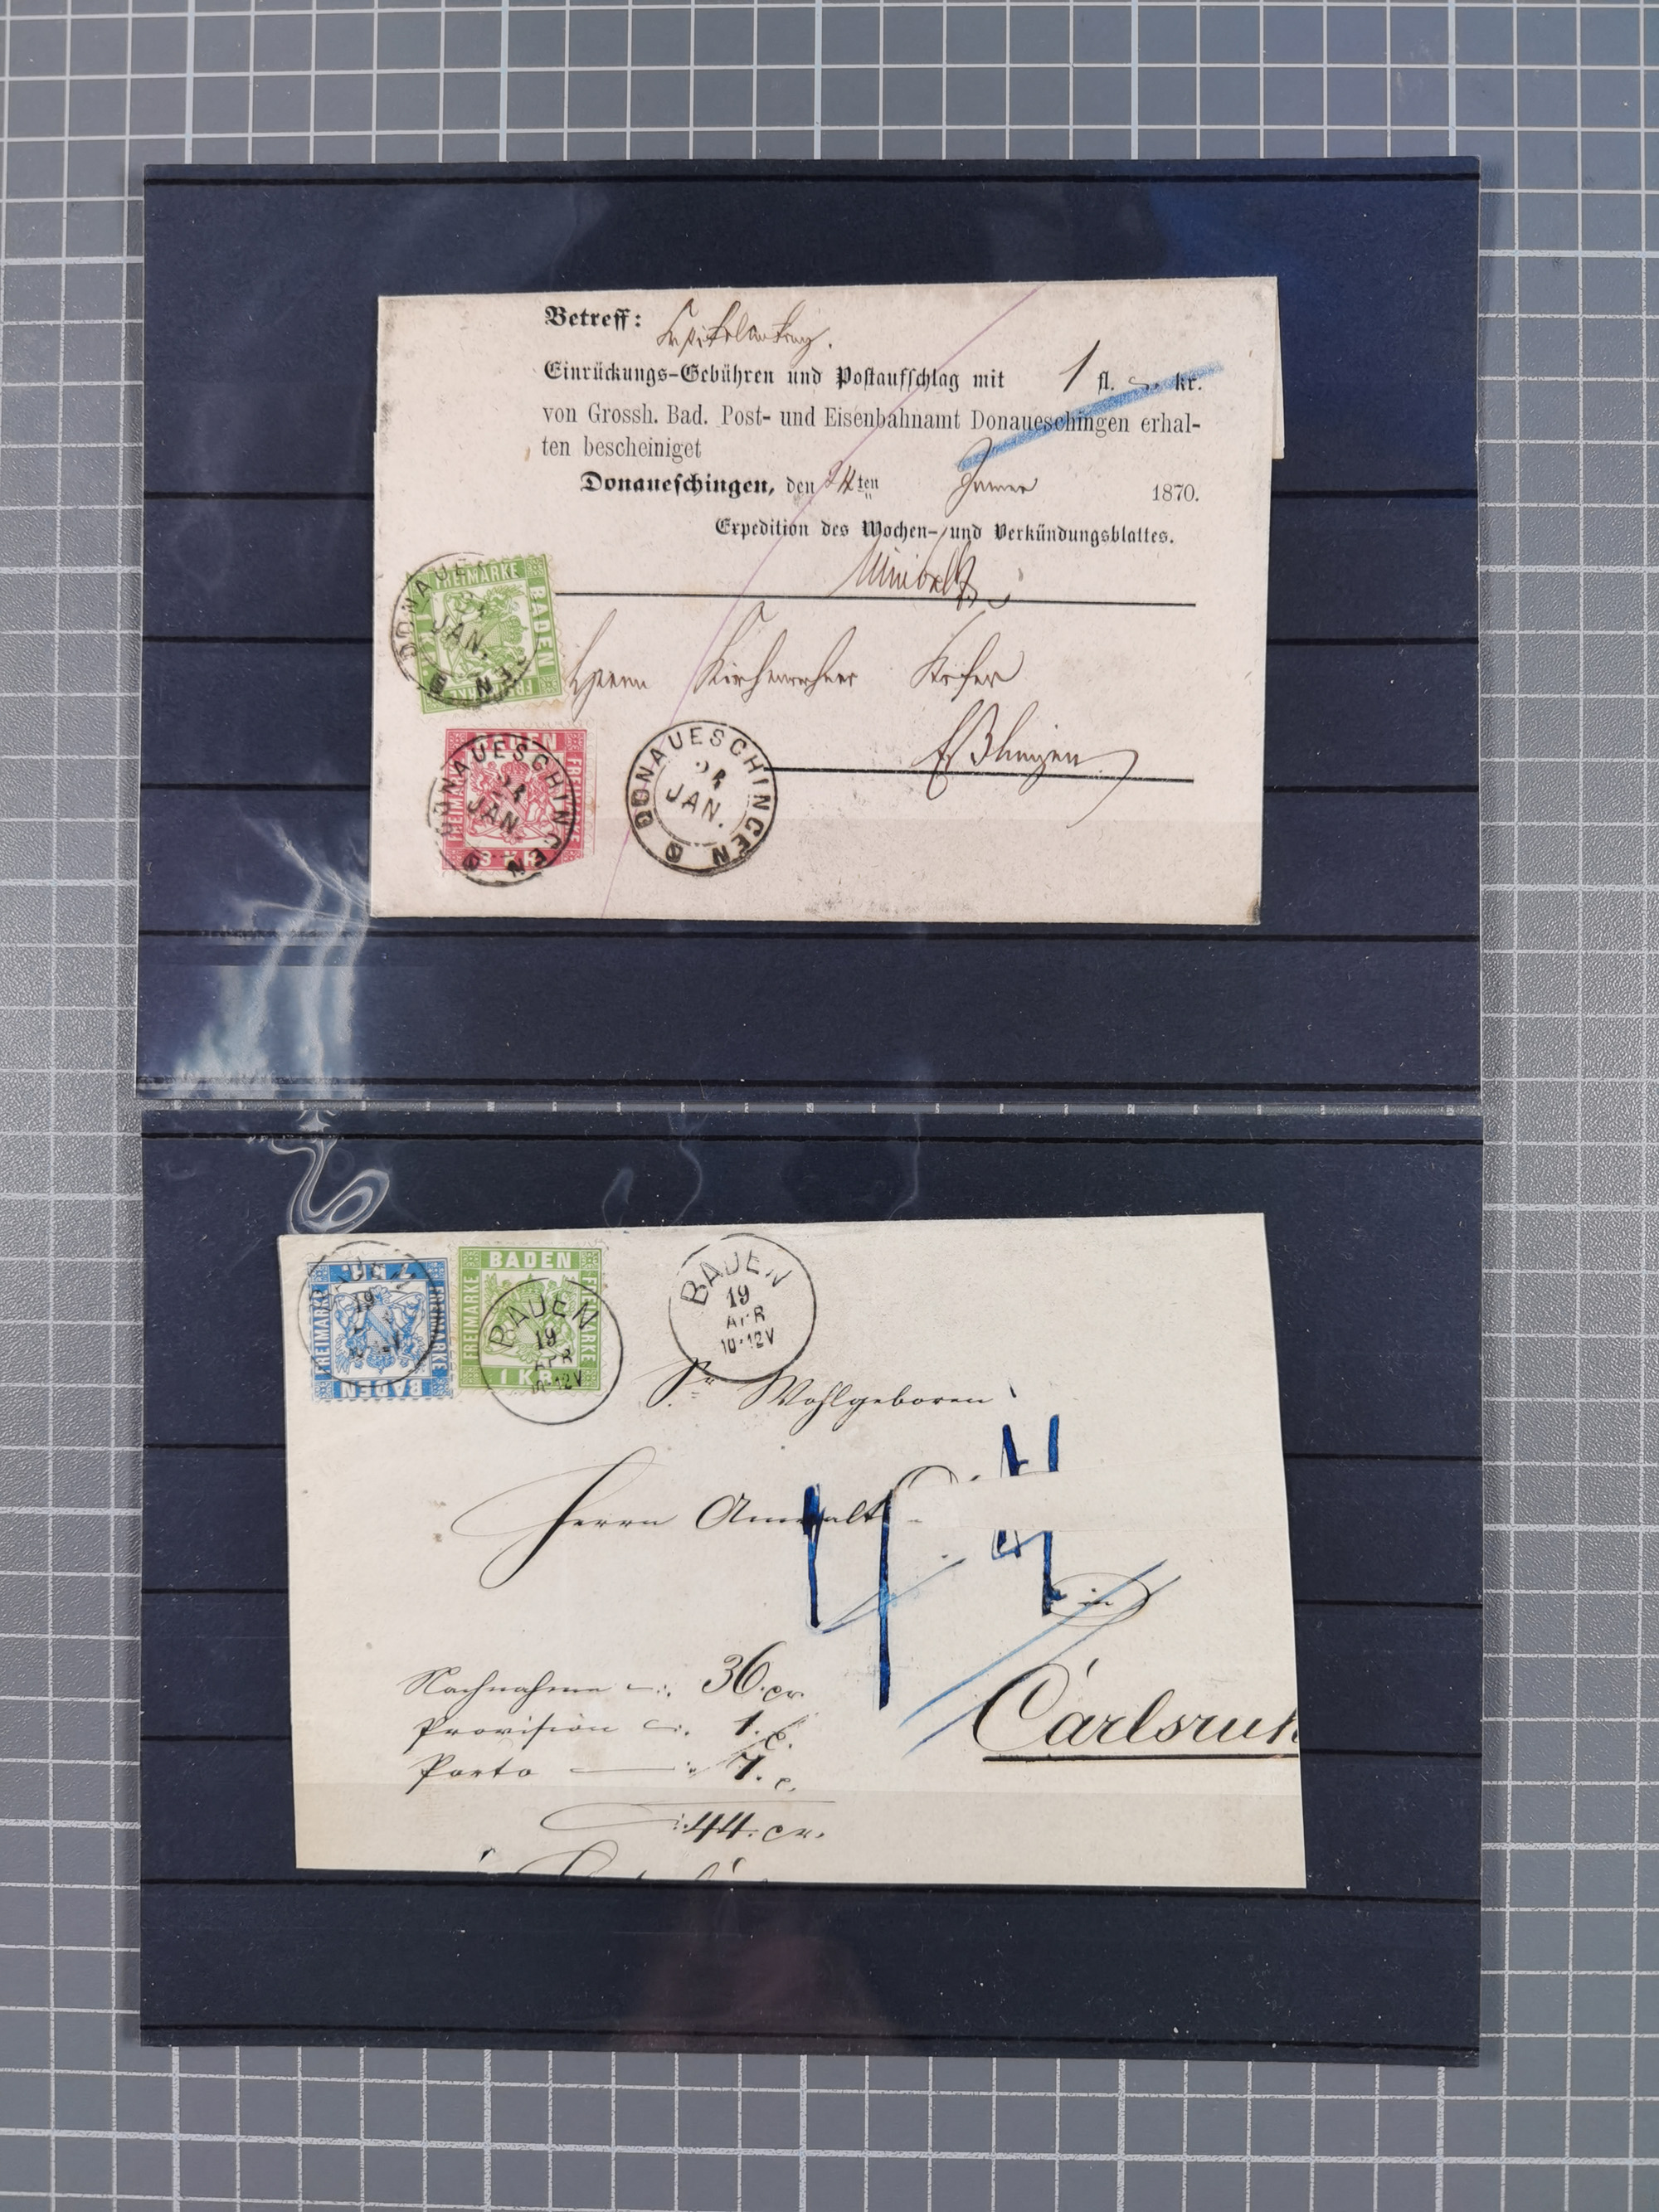 Betreff:
Einrückungs-Gebühren und Postaufschlag mit 1 fl. kr.
von Grossh. Bad. Post- und Eisenbahnamt Donaueschingen erhal-
ten bescheiniget
Donaueschingen, den 24ten Januar 1870.
Expedition des Wochen- und Verkündungsblattes.
FREIMARKE
BADEN
DONAUE
JAN.
EN
Herrn Kirchenrechner
BADEN
FREIMARKE
FREIMARKE
3 KR
DONAUESCHINGEN
24
JAN.
DONAUESCHINGEN
24
JAN.
7 KR.
FREIMARKE
FREIMARKE
BADEN
19
BADEN
FREIMARKE
FREIMARKE
1 KR.
BADEN
19
APR
10-12V
BADEN
19
APR
10-12V
Sr Wohlgeboren
Herrn Anwalt
in
Carlsruh
Nachnahme 36. cr.
Provision 1. c.
Porto 7. c.
44. cr.